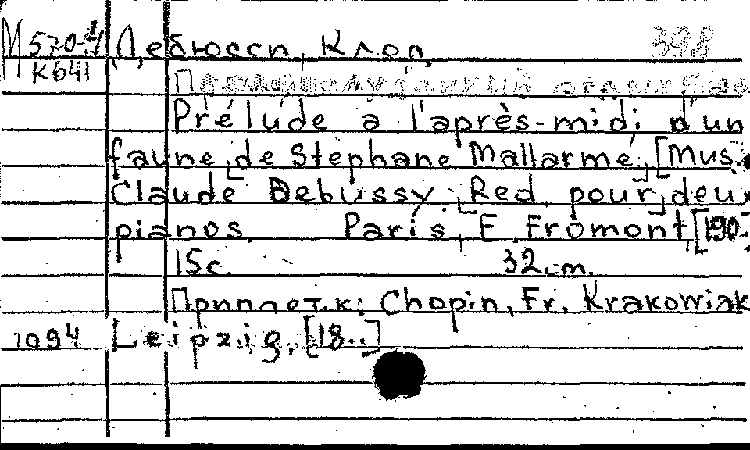 М 570-4 Дебюсси, Клод 398
К641
Prélude à l'après-midi d'un
faune de Stéphane Mallarmé, [Mus.
Claude Debussy. Red. pour deux
pianos. Paris, E. Fromont, [190-
15 с. 32 cm.
Приплет. к: Chopin, Fr. Krakowiak
1094 Leipzig, [18..]